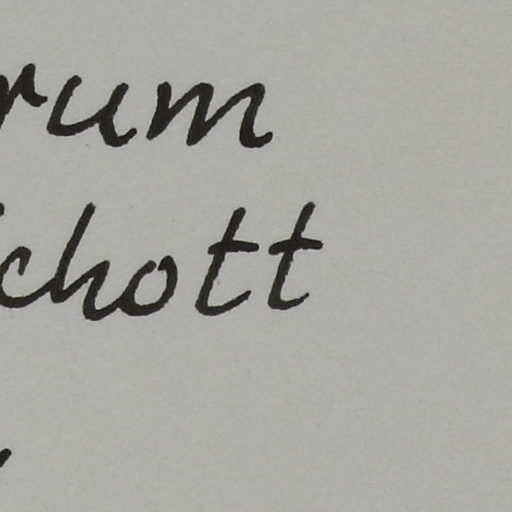 rum
chott